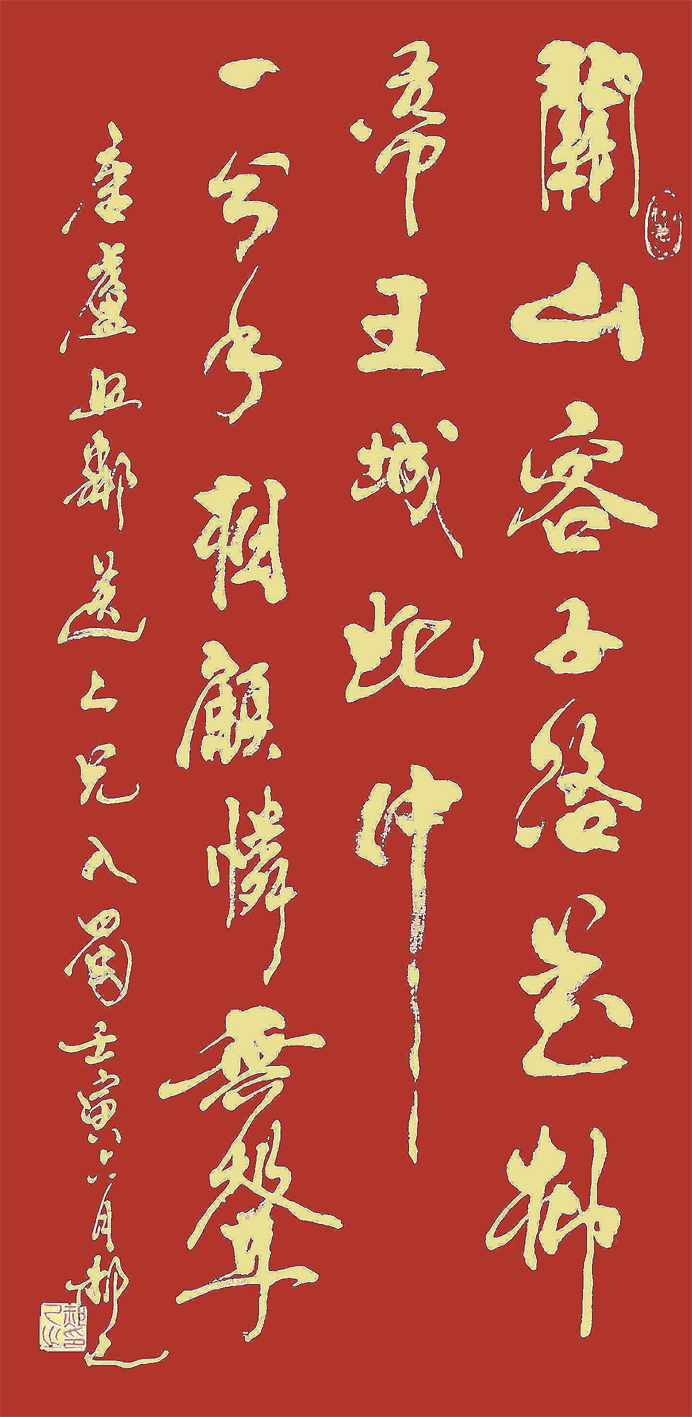 關山客子路花柳
帝王城此中
一分手相顧憐無聲
唐盧照鄰送二兄入蜀壬寅六月郝